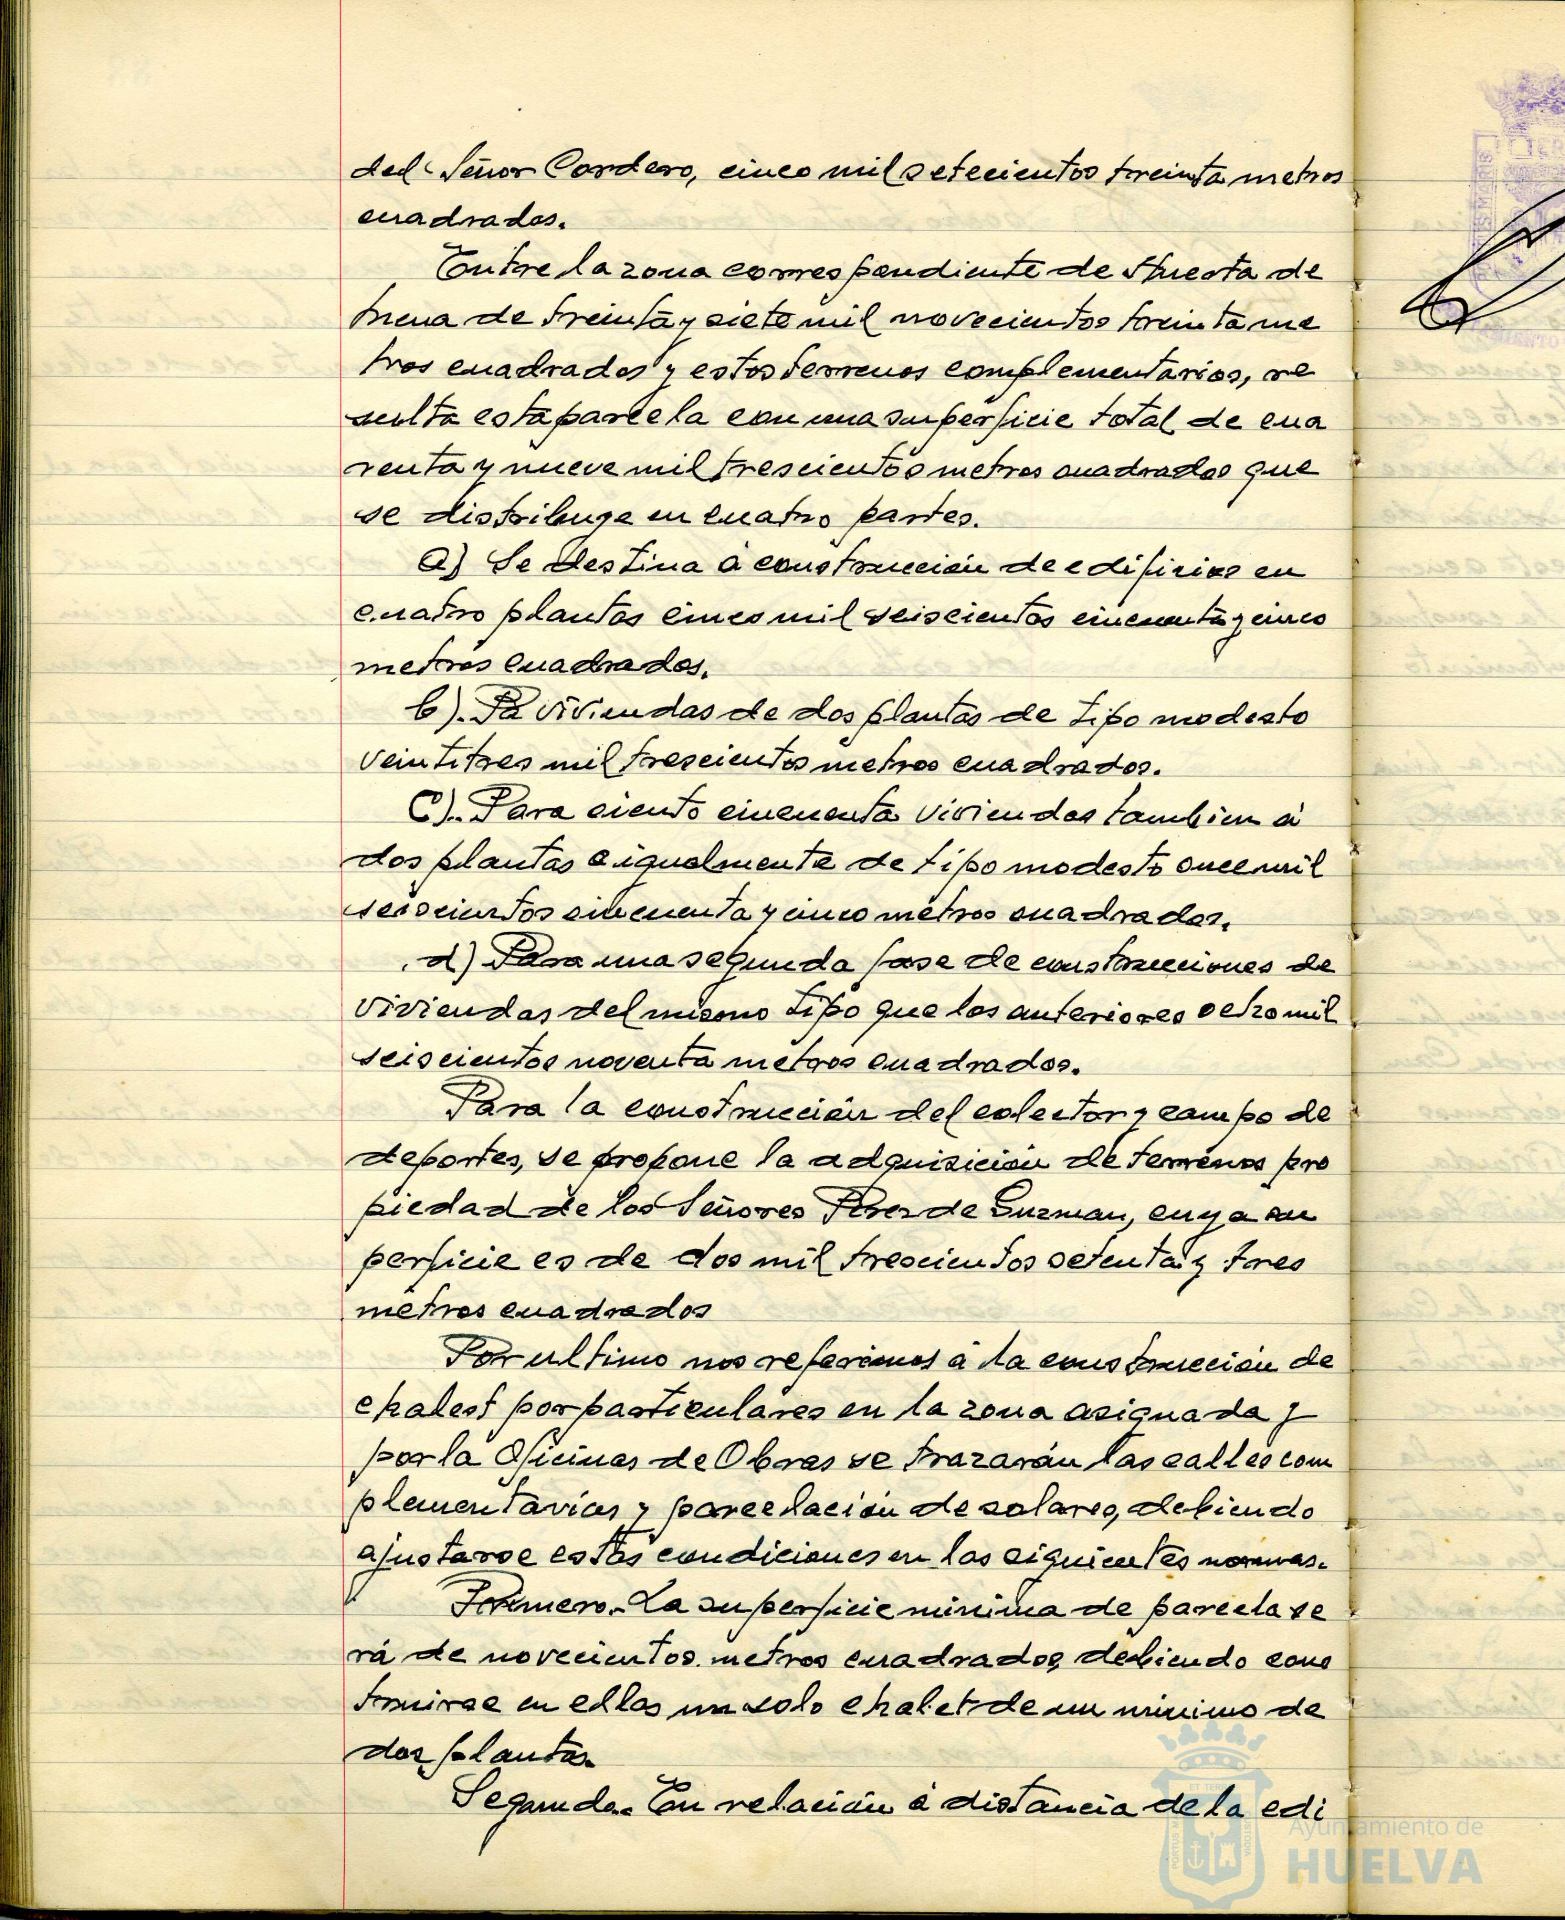 del Señor Cordero, cinco mil setecientos treinta metros
cuadrados.
Entre la zona correspondiente de Huerta de
Mena de treinta y siete mil novecientos treinta me
tros cuadrados y estos terrenos complementarios, re
sulta esta parcela con una superficie total de cua
renta y nueve mil trescientos metros cuadrados que
se distribuye en cuatro partes.
a) Se destina a construcción de edificios en
cuatro plantas cinco mil seiscientos cincuenta y cinco
metros cuadrados.
b).- Pa viviendas de dos plantas de tipo modesto
veintitres mil trescientos metros cuadrados.
C).- Para ciento cincuenta viviendas tambien á
dos plantas e igualmente de tipo modesto once mil
seiscientos cincuenta y cinco metros cuadrados.
d) Para una segunda fase de construcciones de
viviendas del mismo tipo que las anteriores ocho mil
seiscientos noventa metros cuadrados.
Para la construcción del colector y campo de
deportes, se propone la adquisición de terrenos pro
piedad de los Señores Perez de Guzman, cuya su
perficie es de dos mil trescientos setenta y tres
metros cuadrados
Por ultimo nos referimos á la construcción de
chalest por particulares en la zona asignada y
por la Oficinas de Obras se trazarán las calles com
plementarias y parcelación de solares, debiendo
ajustarse estas condiciones en las siguientes normas.
Primero.- La superficie minima de parcela se
rá de novecientos metros cuadrados debiendo cons
truirse en ellas un solo chalet de un minimo de
dos plantas.
Segundo.- En relación á distancia de la edi
Ayuntamiento de
HUELVA